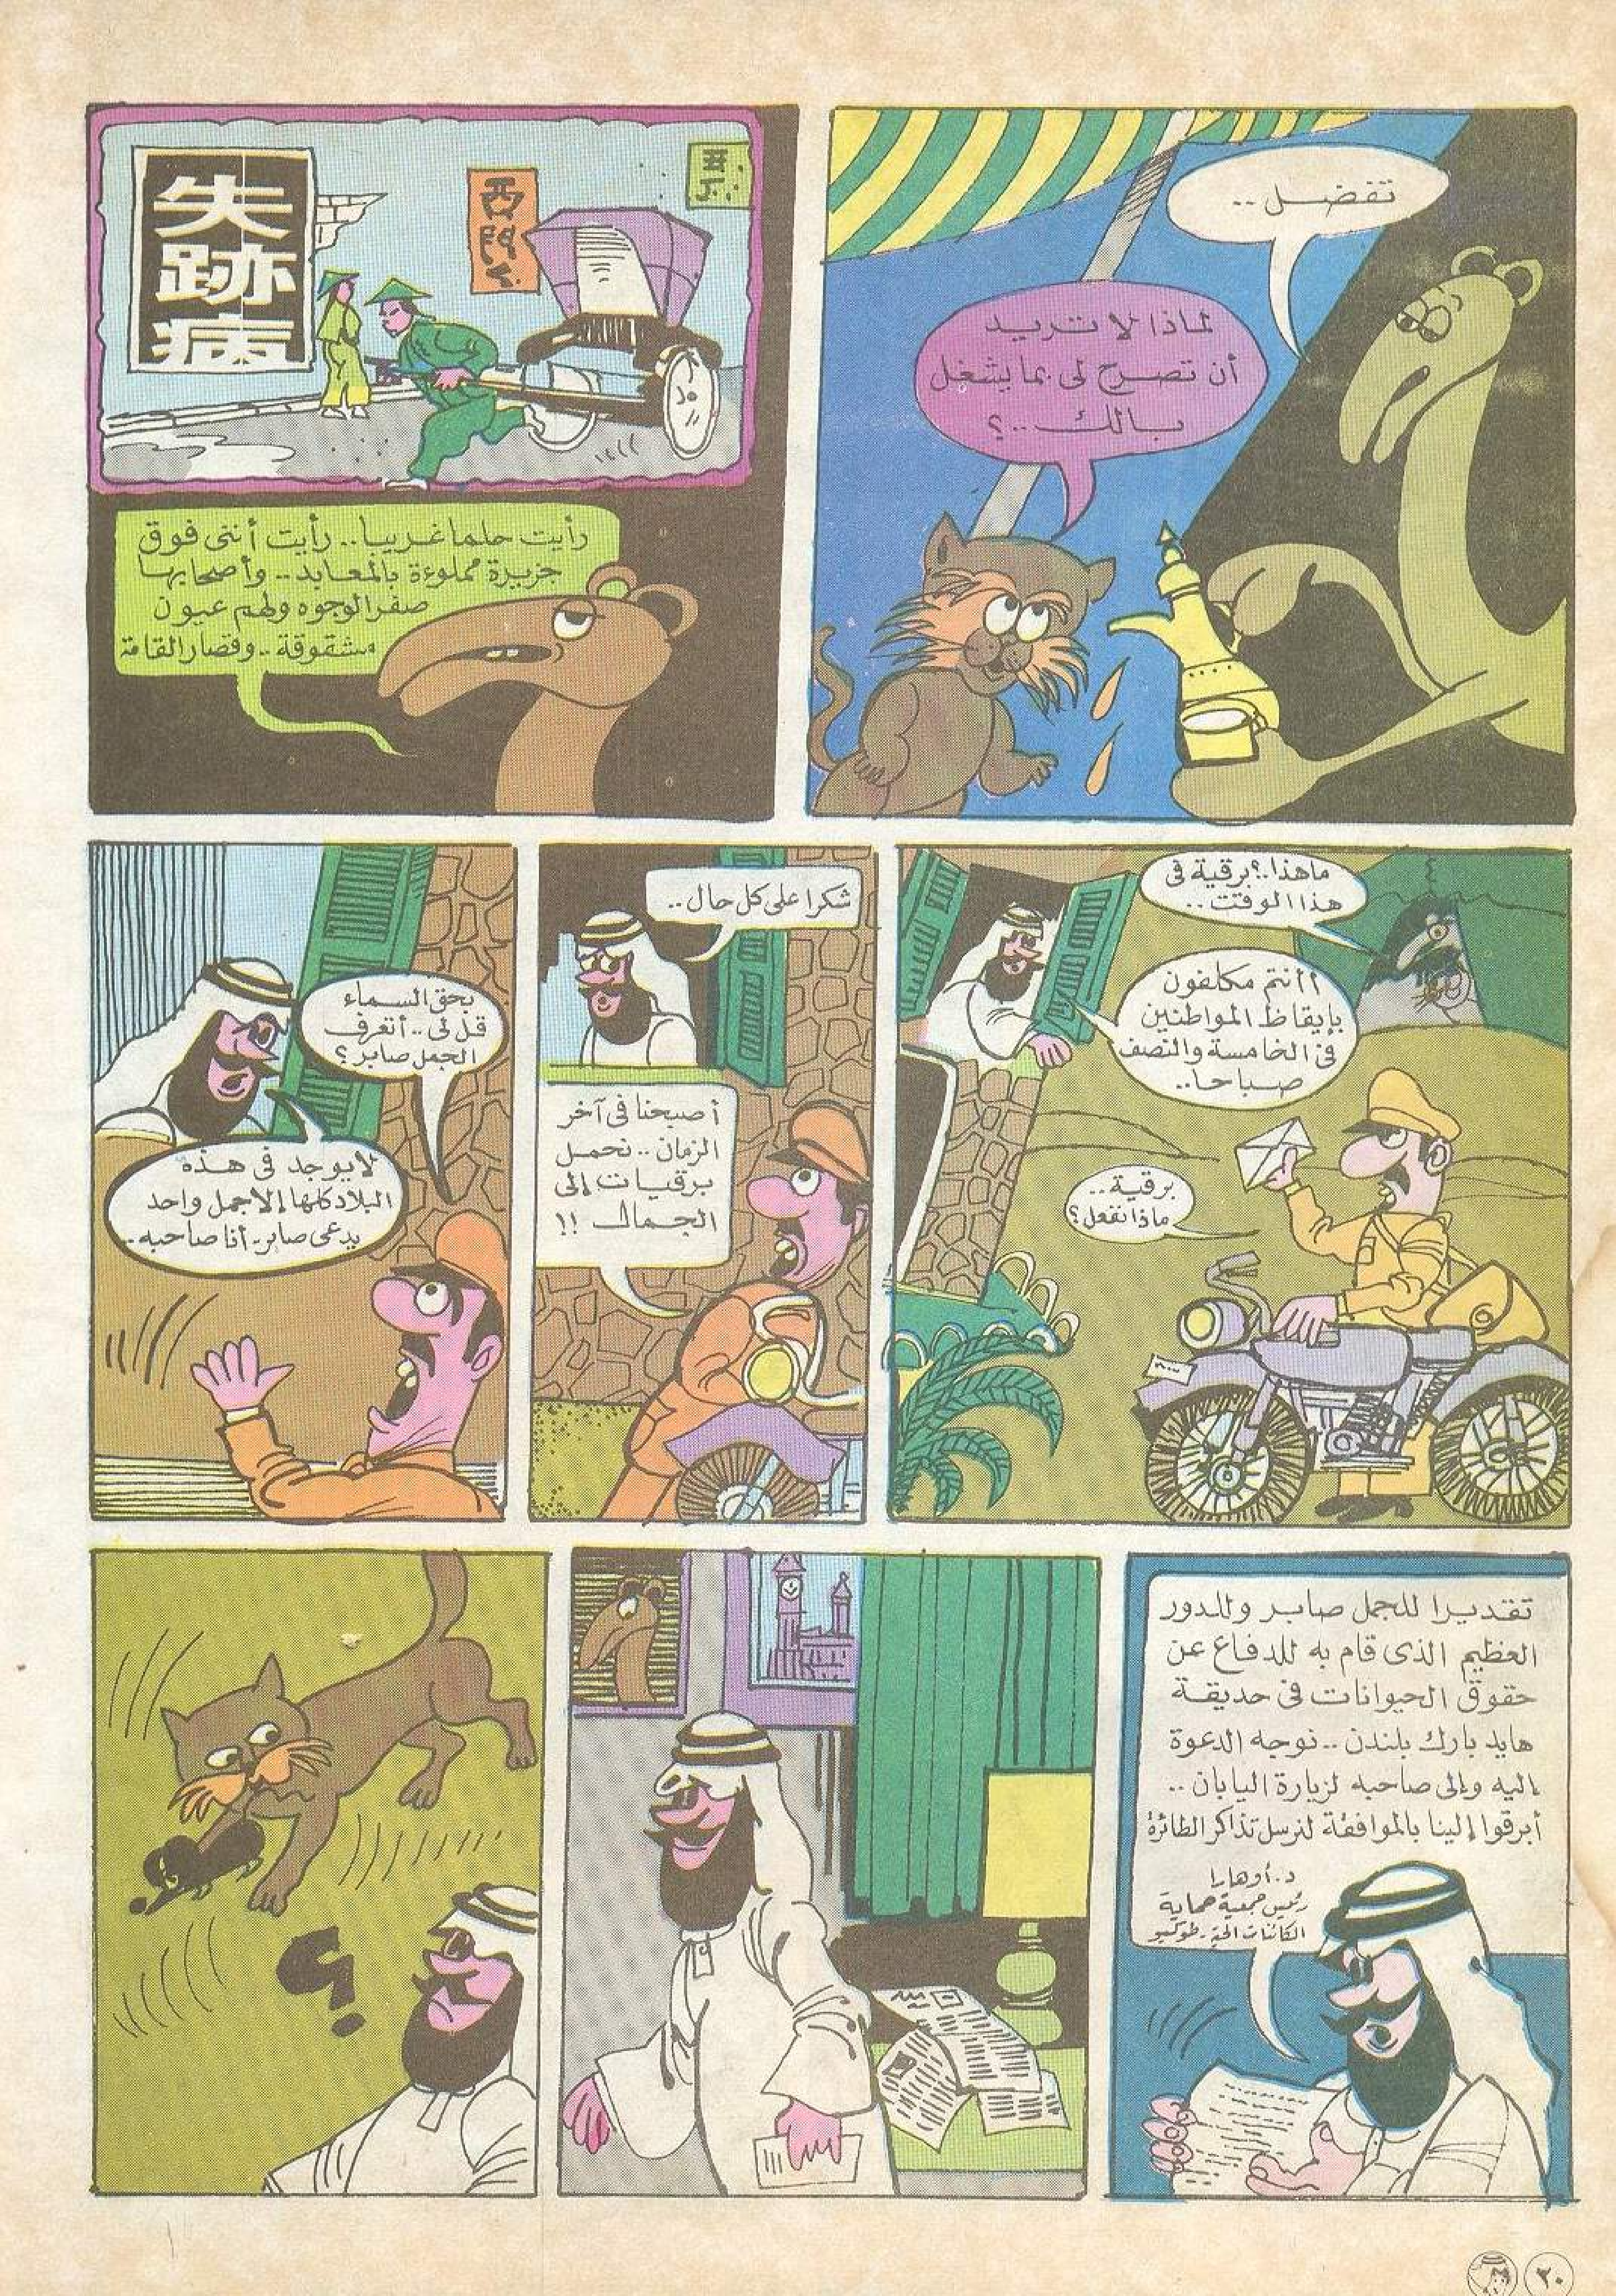 تفضل ..
لماذا لا تريد
أن تصرح لى بما يشغل
بالك ..؟
失
跡
病
西
رأيت حلما غريبا.. رأيت أننى فوق
جزيرة مملوءة بالمعابد.. وأصحابها
صفر الوجوه ولهم عيون
مشقوقة.. وقصار القامة
ما هذا.؟ برقية فى
هذا الوقت ..
أأنتم مكلفون
بإيقاظ المواطنين
فى الخامسة والنصف
صباحا..
برقية..
ماذا نفعل؟
شكرا على كل حال ..
أصبحنا فى آخر
الزمان .. نحمل
برقيات إلى
الجمال !!
بحق السماء
قل لى .. أتعرف
الجمل صابر؟
لا يوجد فى هذه
البلاد كلها إلا جمل واحد
يدعى صابر.. أنا صاحبه..
تقديرا للجمل صابر وللدور
العظيم الذى قام به للدفاع عن
حقوق الحيوانات فى حديقة
هايد بارك بلندن .. نوجه الدعوة
إليه وإلى صاحبه لزيارة اليابان ..
أبرقوا إلينا بالموافقة لنرسل تذاكر الطائرة
د. أوهارا
رئيس جمعية حماية
الكائنات الحية ـ طوكيو
؟
٣٠